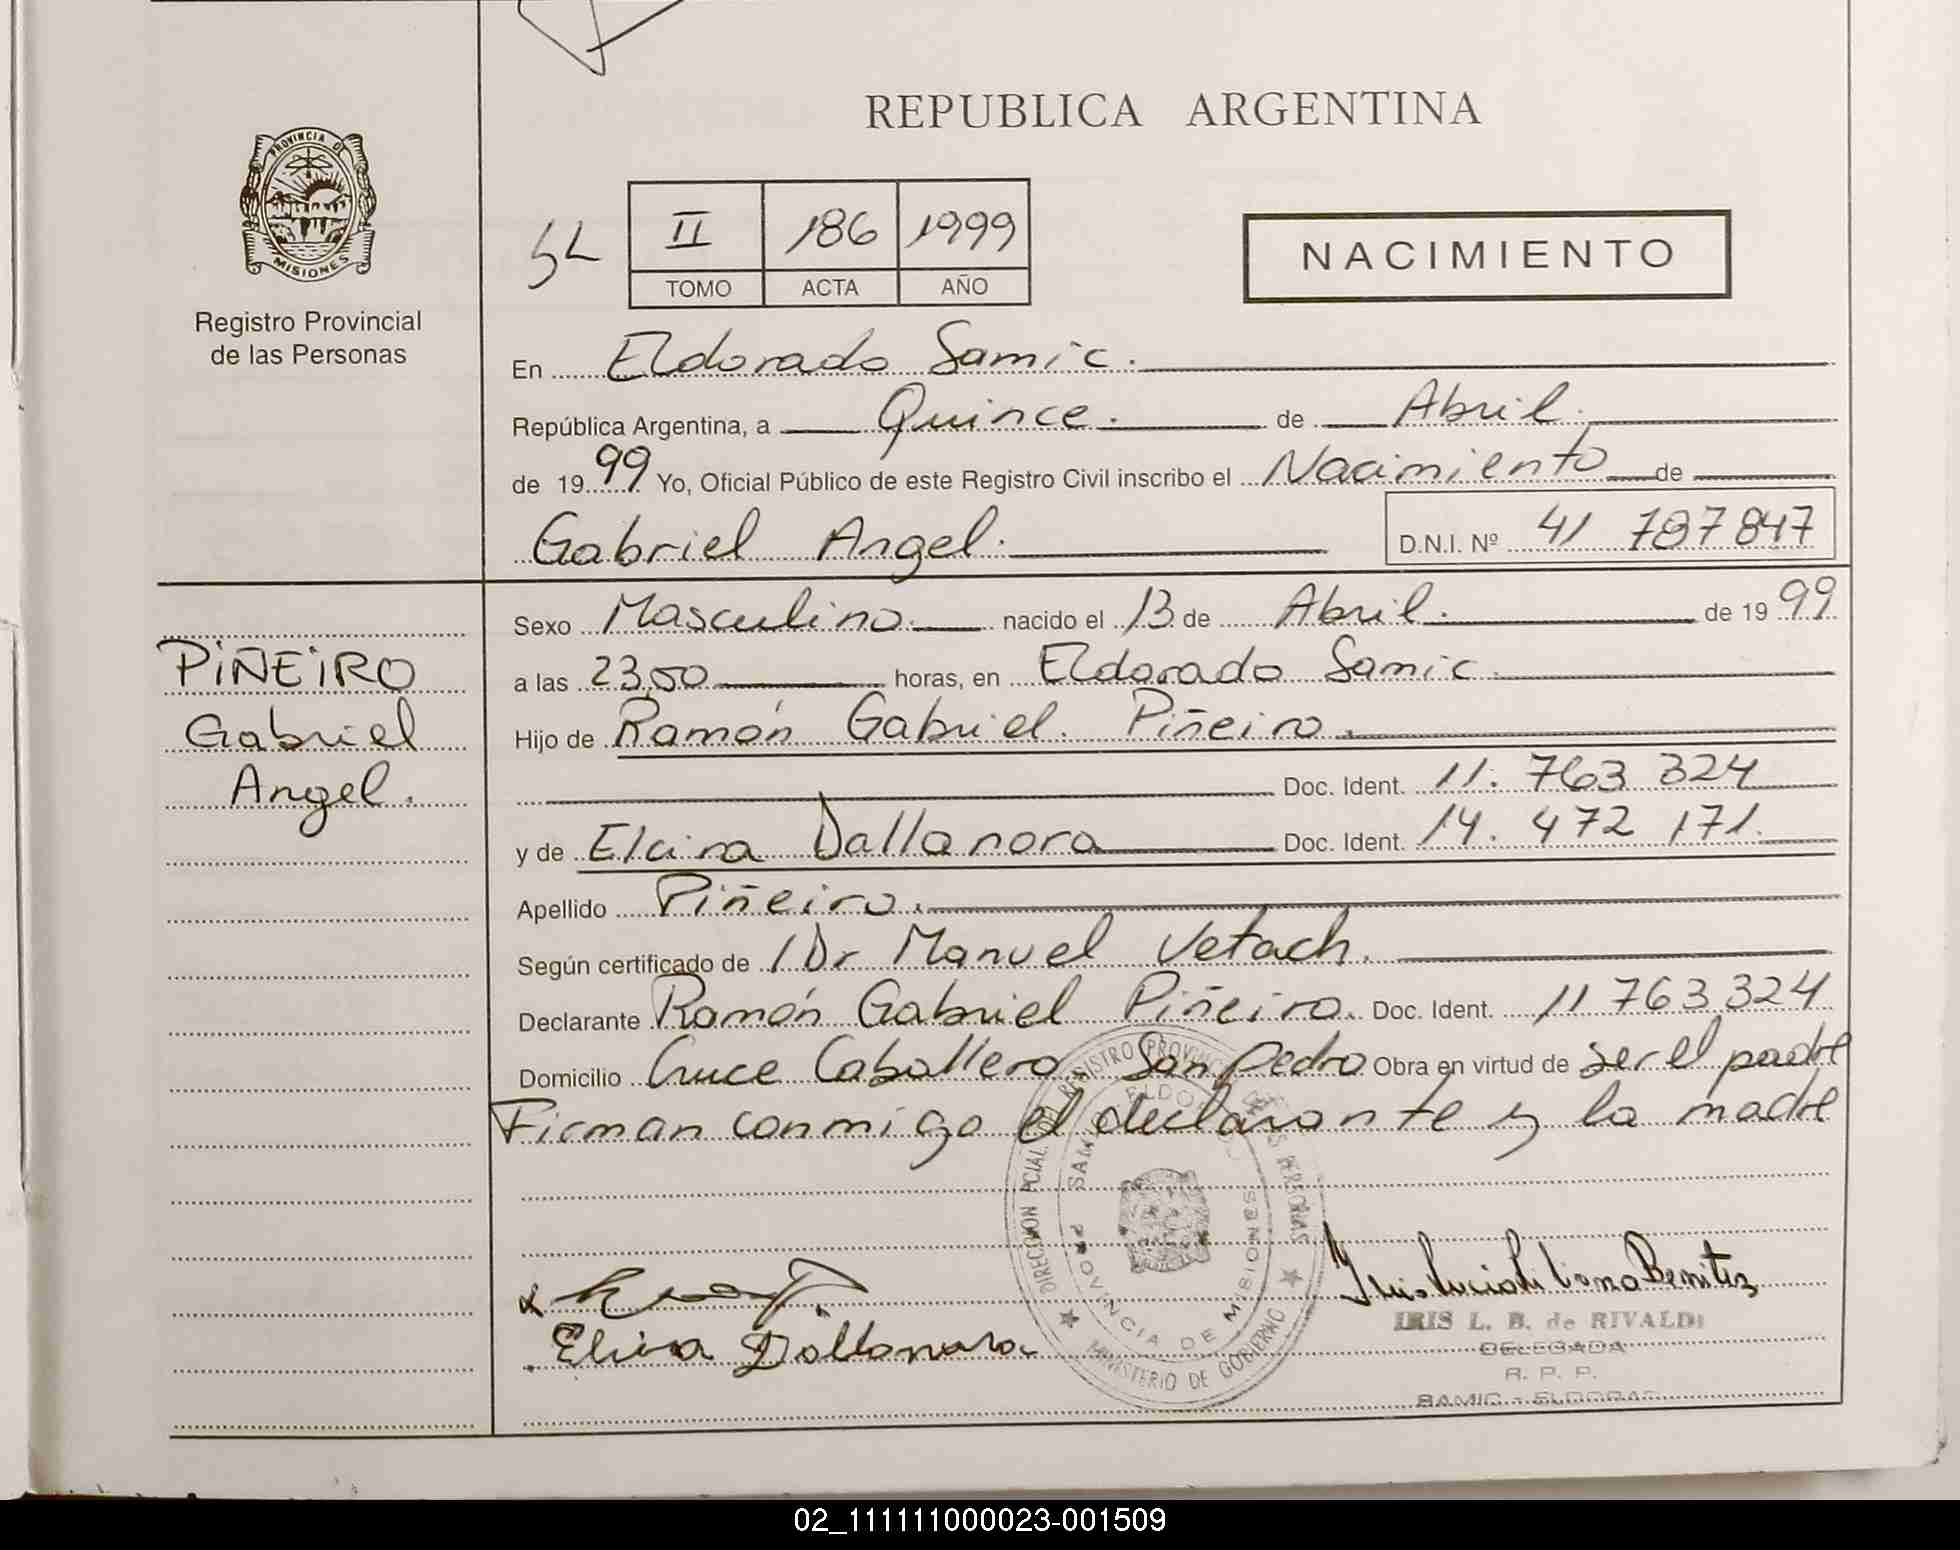 REPUBLICA ARGENTINA
PROVINCIA DE
MISIONES
Registro Provincial
de las Personas
II 186 1999
TOMO ACTA AÑO
NACIMIENTO
En Eldorado Samic.
República Argentina, a Quince. de Abril.
de 1999 Yo, Oficial Público de este Registro Civil inscribo el Nacimiento de
Gabriel Angel. D.N.I. Nº 41 787847
Sexo Masculino. nacido el 13 de Abril. de 1999
a las 23,50 horas, en Eldorado Samic.
Hijo de Ramón Gabriel. Piñeiro.
Doc. Ident. 11. 763 324
y de Elcira Dallanora Doc. Ident. 14. 472 171.
Apellido Piñeiro.
Según certificado de / Dr Manuel Vetach.
Declarante Ramón Gabriel Piñeiro. Doc. Ident. 11 763,324
Domicilio Cruce Caballero, San Pedro Obra en virtud de ser el padre
Firman conmigo el declarante y la madre
PIÑEIRO
Gabriel
Angel.
DIRECCION PCIAL DEL REGISTRO PROVINCIAL DE LAS PERSONAS
MINISTERIO DE GOBIERNO
PROVINCIA DE MISIONES
Elcira Dallanora
Iris Lucia Liliana Benitez
IRIS L. B. de RIVALDI
DELEGADA
R. P. P.
SAMIC - ELDORADO
02_111111000023-001509